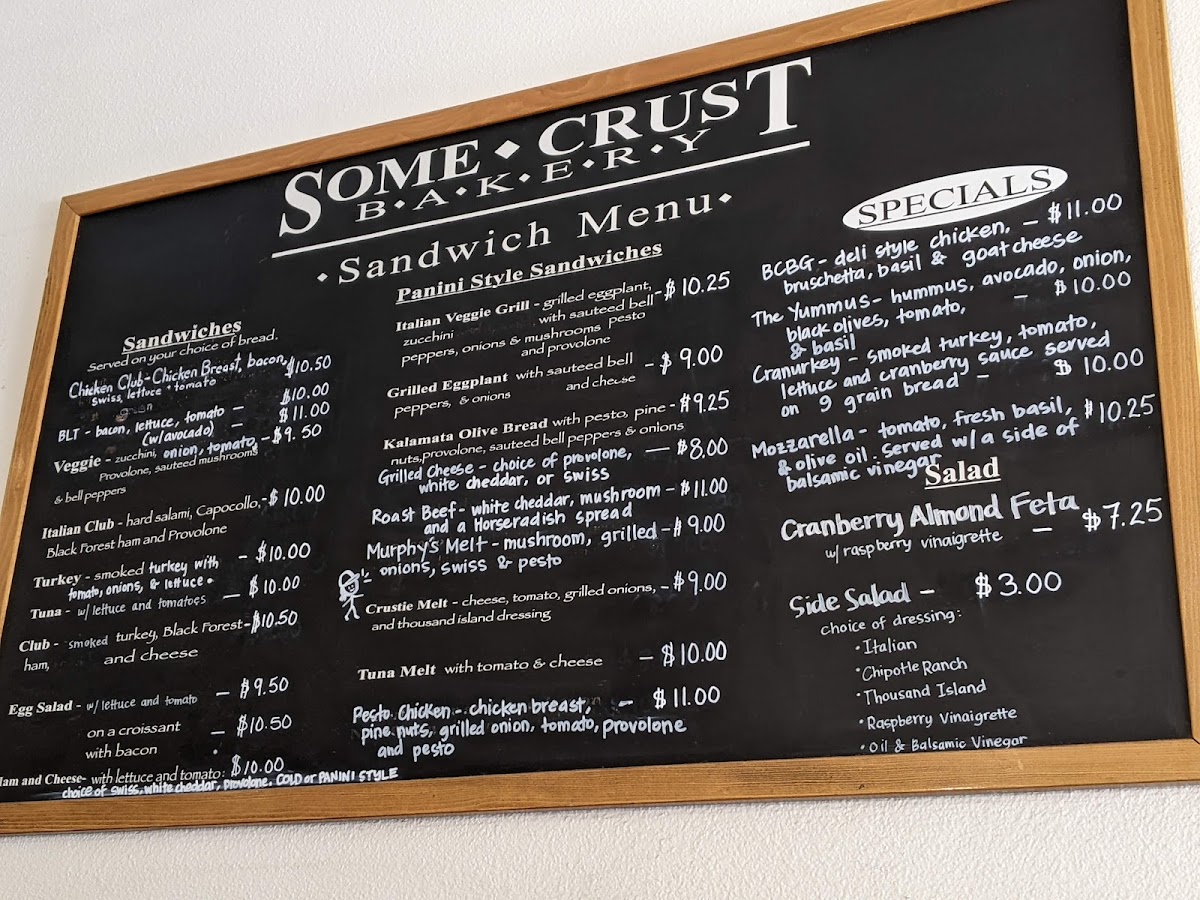 SOME • CRUST
B•A•K•E•R•Y
•Sandwich Menu•
Sandwiches
Served on your choice of bread.
Chicken Club - Chicken Breast, bacon, $10.50
swiss, lettuce • tomato
BLT - bacon, lettuce, tomato — $10.00
(w/avocado) — $11.00
Veggie - zucchini, onion, tomato, - $9.50
Provolone, sauteed mushrooms
& bell peppers
Italian Club - hard salami, Capocollo, - $10.00
Black Forest ham and Provolone
Turkey - smoked turkey with - $10.00
tomato, onions, & lettuce
Tuna - w/ lettuce and tomatoes — $10.00
Club - smoked turkey, Black Forest - $10.50
ham, and cheese
Egg Salad - w/ lettuce and tomato — $9.50
on a croissant — $10.50
with bacon
Ham and Cheese- with lettuce and tomato: $10.00
choice of swiss, white cheddar, provolone, COLD or PANINI STYLE
Panini Style Sandwiches
Italian Veggie Grill - grilled eggplant, - $10.25
zucchini with sauteed bell
peppers, onions & mushrooms pesto
and provolone
Grilled Eggplant with sauteed bell - $9.00
peppers, & onions and cheese
Kalamata Olive Bread with pesto, pine - $9.25
nuts, provolone, sauteed bell peppers & onions
Grilled Cheese - choice of provolone, — $8.00
white cheddar, or swiss
Roast Beef - white cheddar, mushroom - $11.00
and a Horseradish spread
Murphy's Melt - mushroom, grilled - $9.00
onions, swiss & pesto
Crustie Melt - cheese, tomato, grilled onions, - $9.00
and thousand island dressing
Tuna Melt with tomato & cheese — $10.00
Pesto Chicken - chicken breast, — $11.00
pine nuts, grilled onion, tomato, provolone
and pesto
SPECIALS
BCBG - deli style chicken, — $11.00
bruschetta, basil & goat cheese
The Yummus - hummus, avocado, onion,
black olives, tomato, — $10.00
& basil
Cranurkey - smoked turkey, tomato,
lettuce and cranberry sauce served
on 9 grain bread — $10.00
Mozzarella - tomato, fresh basil, $10.25
& olive oil. Served w/ a side of
balsamic vinegar
Salad
Cranberry Almond Feta
w/ raspberry vinaigrette — $7.25
Side Salad - $3.00
choice of dressing:
• Italian
• Chipotle Ranch
• Thousand Island
• Raspberry Vinaigrette
• Oil & Balsamic Vinegar